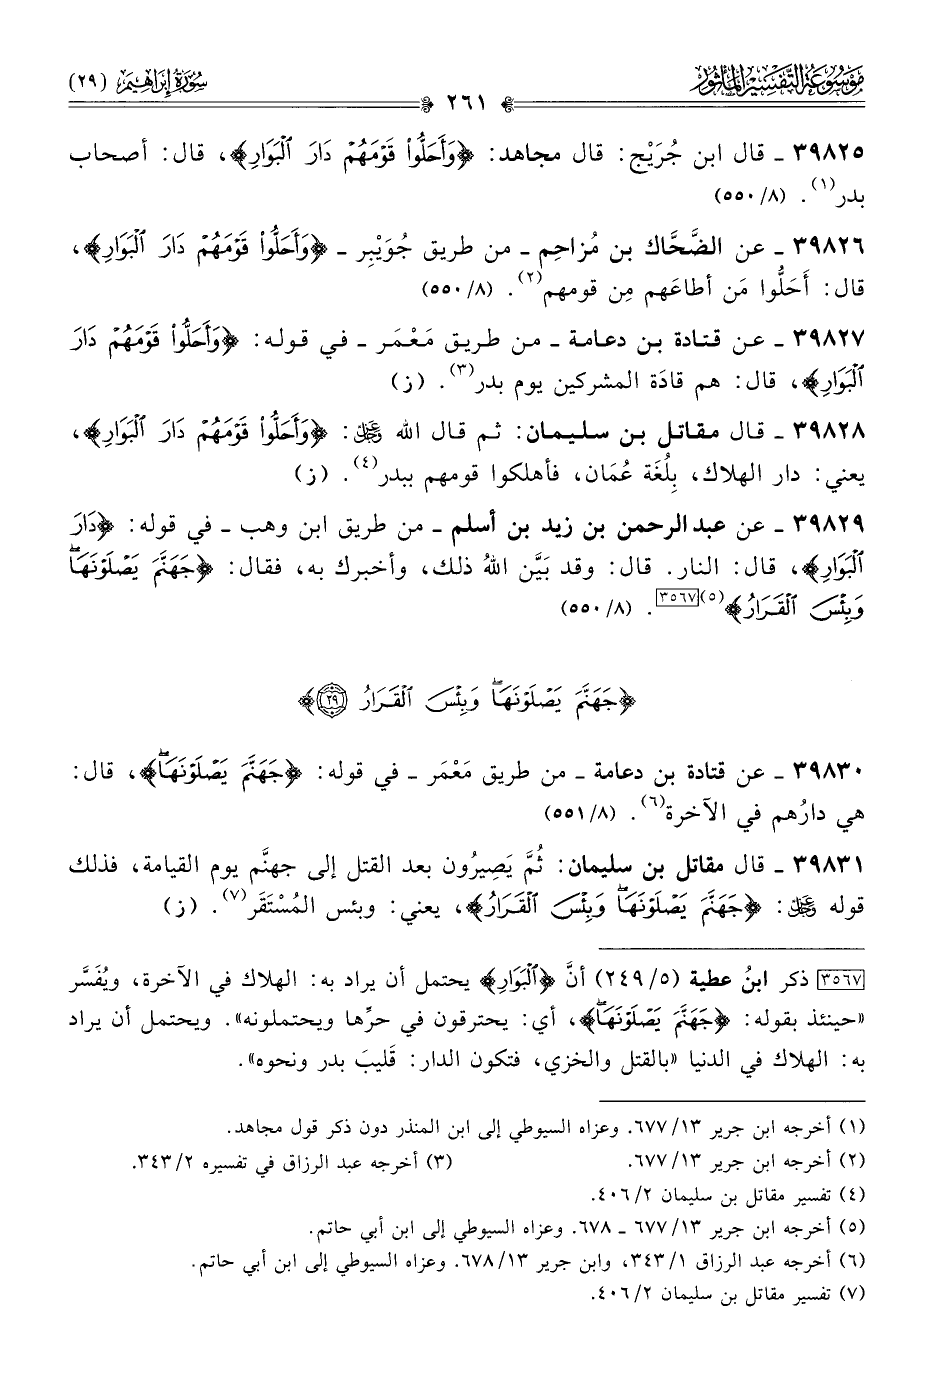 مَوْسُوعَة التَّفْسِيْر المَأْثُور
سُورَةُ إِبْرَاهِيم (٢٩)
٢٦١
٣٩٨٢٥ ـ قال ابن جُرَيْج: قال مجاهد: ﴿وَأَحَلُّواْ قَوْمَهُمْ دَارَ ٱلْبَوَارِ﴾، قال: أصحاب
بدر(١). (٨/ ٥٥٠)
٣٩٨٢٦ ـ عن الضَّحَّاك بن مُزاحِم ـ من طريق جُوَيْبِر ـ ﴿وَأَحَلُّواْ قَوْمَهُمْ دَارَ ٱلْبَوَارِ﴾،
قال: أَحَلُّوا مَن أطاعَهم مِن قومهم(٢). (٨/ ٥٥٠)
٣٩٨٢٧ ـ عن قتادة بن دعامة ـ من طريق مَعْمَر ـ في قوله: ﴿وَأَحَلُّواْ قَوْمَهُمْ دَارَ
ٱلْبَوَارِ﴾، قال: هم قادَة المشركين يوم بدر(٣). (ز)
٣٩٨٢٨ ـ قال مقاتل بن سليمان: ثم قال الله ﷿: ﴿وَأَحَلُّواْ قَوْمَهُمْ دَارَ ٱلْبَوَارِ﴾،
يعني: دار الهلاك، بِلُغَة عُمَان، فأهلكوا قومهم ببدر(٤). (ز)
٣٩٨٢٩ ـ عن عبد الرحمن بن زيد بن أسلم ـ من طريق ابن وهب ـ في قوله: ﴿دَارَ
ٱلْبَوَارِ﴾، قال: النار. قال: وقد بَيَّن اللهُ ذلك، وأخبرك به، فقال: ﴿جَهَنَّمَ يَصْلَوْنَهَاۖ
وَبِئْسَ ٱلْقَرَارُ﴾(٥)[٣٥٦٧]. (٨/ ٥٥٠)
﴿جَهَنَّمَ يَصْلَوْنَهَاۖ وَبِئْسَ ٱلْقَرَارُ ۝٢٩﴾
٣٩٨٣٠ ـ عن قتادة بن دعامة ـ من طريق مَعْمَر ـ في قوله: ﴿جَهَنَّمَ يَصْلَوْنَهَاۖ﴾، قال:
هي دارُهم في الآخرة(٦). (٨/ ٥٥١)
٣٩٨٣١ ـ قال مقاتل بن سليمان: ثُمَّ يَصِيرُون بعد القتل إلى جهنَّم يوم القيامة، فذلك
قوله ﷿: ﴿جَهَنَّمَ يَصْلَوْنَهَاۖ وَبِئْسَ ٱلْقَرَارُ﴾، يعني: وبئس المُسْتَقَر(٧). (ز)
[٣٥٦٧] ذكر ابنُ عطية (٥/ ٢٤٩) أنَّ ﴿ٱلْبَوَارِ﴾ يحتمل أن يراد به: الهلاك في الآخرة، ويُفَسَّر
«حينئذ بقوله: ﴿جَهَنَّمَ يَصْلَوْنَهَاۖ﴾، أي: يحترقون في حرِّها ويحتملونه». ويحتمل أن يراد
به: الهلاك في الدنيا «بالقتل والخزي، فتكون الدار: قَليبَ بدر ونحوه».
(١) أخرجه ابن جرير ١٣/ ٦٧٧. وعزاه السيوطي إلى ابن المنذر دون ذكر قول مجاهد.
(٢) أخرجه ابن جرير ١٣/ ٦٧٧. (٣) أخرجه عبد الرزاق في تفسيره ٢/ ٣٤٣.
(٤) تفسير مقاتل بن سليمان ٢/ ٤٠٦.
(٥) أخرجه ابن جرير ١٣/ ٦٧٧ ـ ٦٧٨. وعزاه السيوطي إلى ابن أبي حاتم.
(٦) أخرجه عبد الرزاق ١/ ٣٤٣، وابن جرير ١٣/ ٦٧٨. وعزاه السيوطي إلى ابن أبي حاتم.
(٧) تفسير مقاتل بن سليمان ٢/ ٤٠٦.